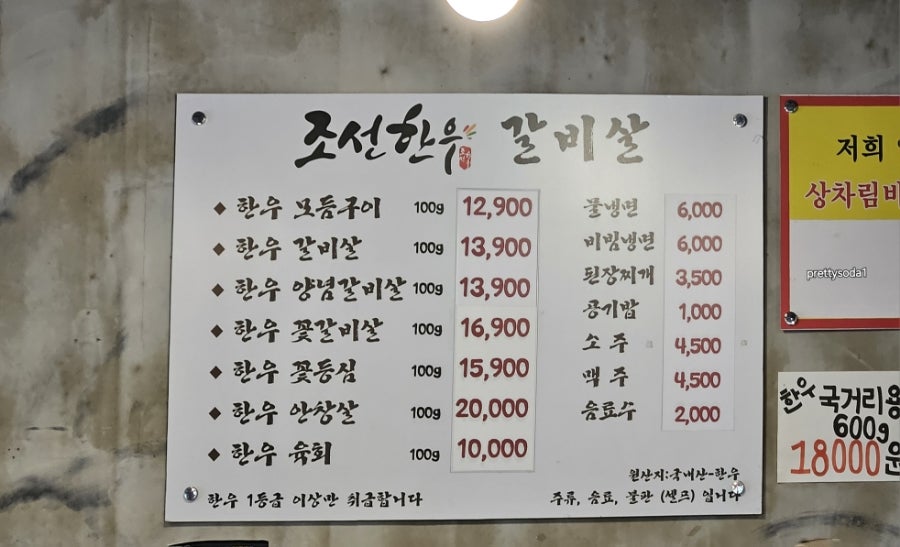 조선한우 갈비살
◆ 한우 모듬구이 100g 12,900
◆ 한우 갈비살 100g 13,900
◆ 한우 양념갈비살 100g 13,900
◆ 한우 꽃갈비살 100g 16,900
◆ 한우 꽃등심 100g 15,900
◆ 한우 안창살 100g 20,000
◆ 한우 육회 100g 10,000
한우 1등급 이상만 취급합니다
물냉면 6,000
비빔냉면 6,000
된장찌개 3,500
공기밥 1,000
소주 4,500
맥주 4,500
음료수 2,000
원산지:국내산-한우
주류, 음료, 불판 (셀프) 입니다
저희
상차림비
prettysoda1
한우 국거리용
600g
18000원